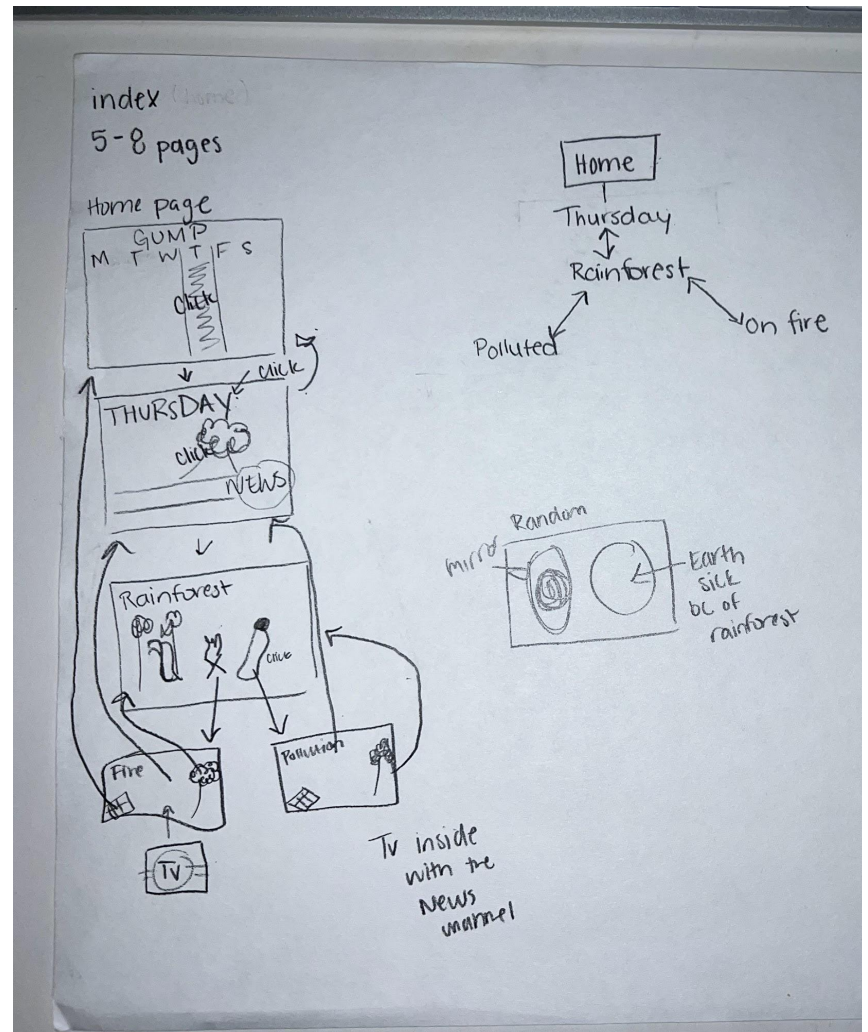 index (home)
5-8 pages
Home page
GUMP
M T W T F S
Click
click
THURSDAY
click
NEWS
Rainforest
click
Fire
Pollution
TV
Tv inside
with the
News
channel
Home
Thursday
Rainforest
Polluted
on fire
Random
mirror
Earth
sick
bc of
rainforest